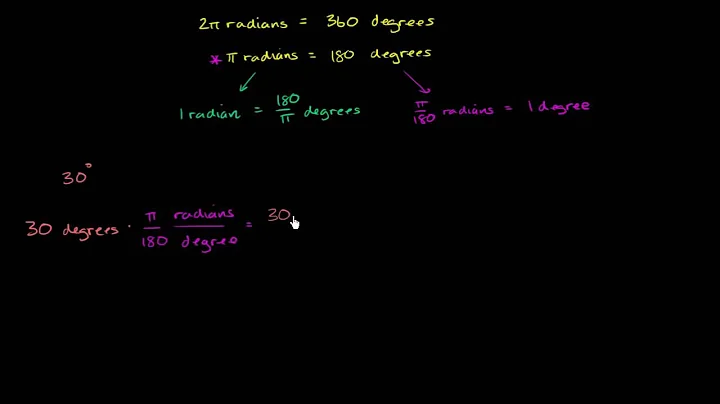 2π radians = 360 degrees
* π radians = 180 degrees
1 radian = 180/π degrees
π/180 radians = 1 degree
30°
30 degrees · π/180 radians/degree = 30